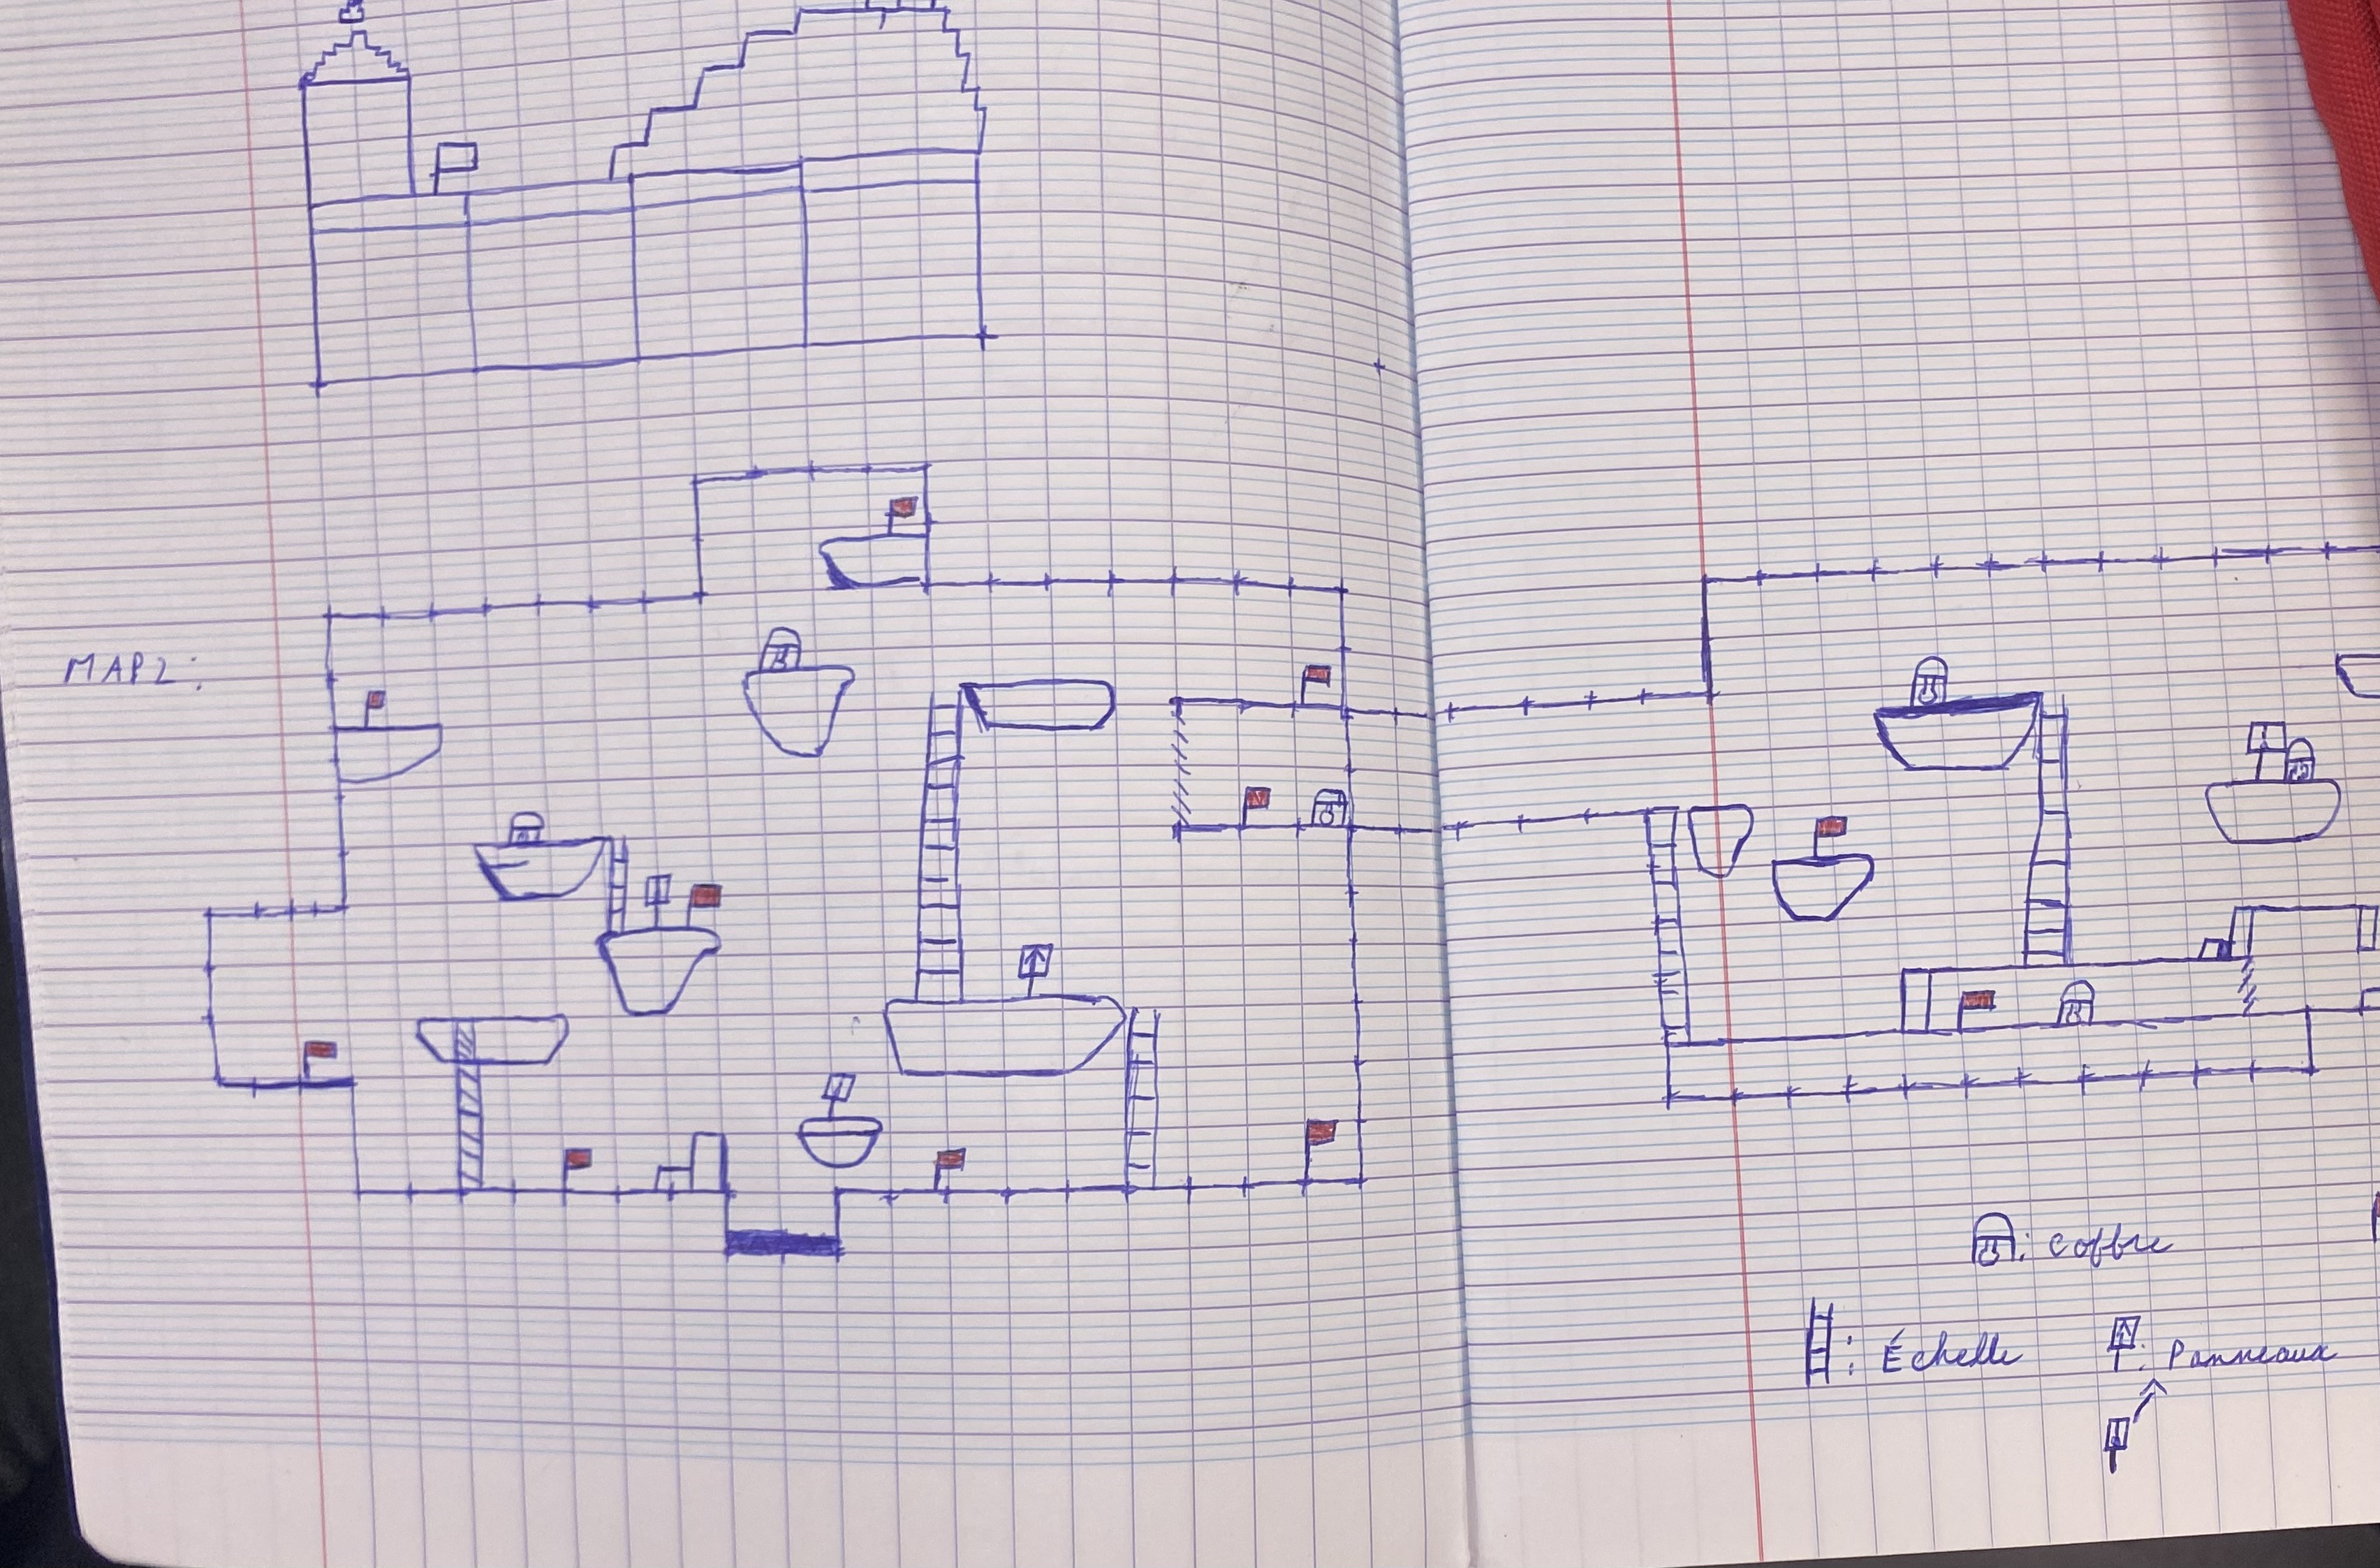 MAP2:
: coffre
: Échelle
: Panneaux